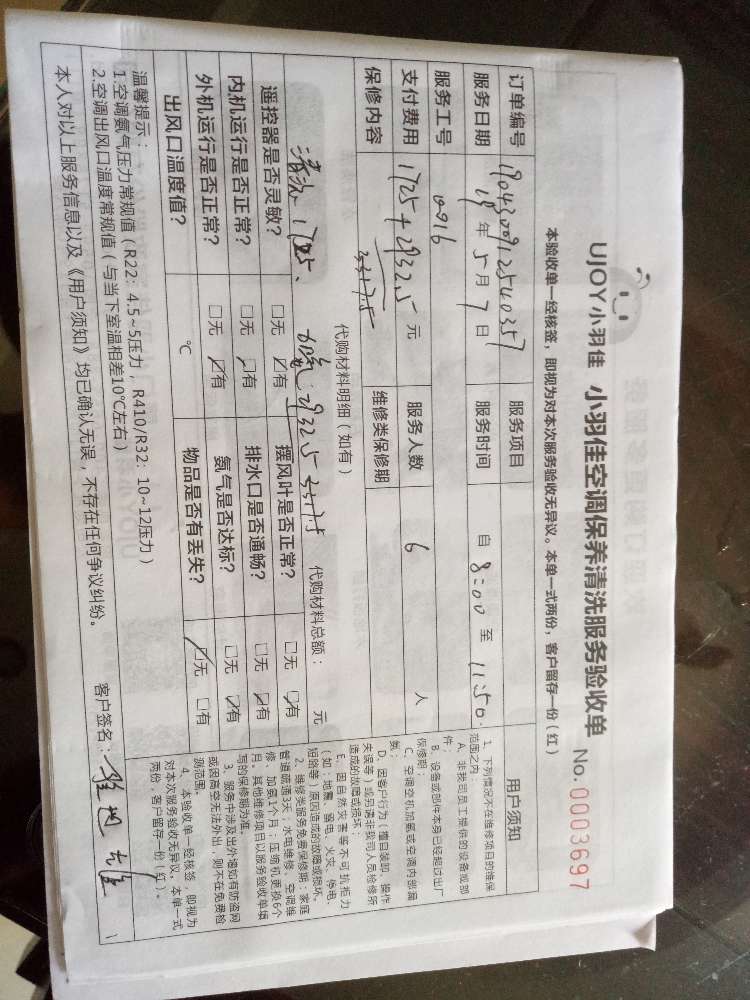 UJOY小羽佳 小羽佳空调保养清洗服务验收单
No. 0003697
本验收单一经核签，即视为对本次服务验收无异议。本单一式两份，客户留存一份(红)
订单编号 服务项目
服务日期 19年5月7日 服务时间 自 8:00 至 11:50
服务工号 0916
支付费用 1725+2932.5 元 服务人数 6 人
保修内容 维修类保修期
代购材料明细(如有) 代购材料总额： 元
清洗1725、
遥控器是否灵敏? □无 ☑有 摆风叶是否正常? □无 ☑有
内机运行是否正常? □无 ☑有 排水口是否通畅? □无 ☑有
外机运行是否正常? □无 ☑有 氨气是否达标? □无 ☑有
出风口温度值? ℃ 物品是否有丢失? ☑无 □有
温馨提示：
1.空调氨气压力常规值(R22: 4.5~5压力, R410/R32: 10~12压力)
2.空调出风口温度常规值(与当下室温相差10℃左右)
本人对以上服务信息以及《用户须知》均已确认无误，不存在任何争议纠纷。
客户签名：
用户须知
1、下列情况不在维修项目的维保
范围之内：
A、非我司员工提供的设备或部
件；
B、设备或部件本身已经超过出厂
保修期；
C、空调空机加氨或空调内部漏
氨；
D、因客户行为(擅自装卸、操作
失误等)或另请非我司人员检修所
造成的故障或损坏；
E、因自然灾害等不可抗拒力
(如：地震、雷电、火灾、停电、
短路等)原因造成的故障或损坏。
2、维修类服务免费保修期：家庭
管道疏通3天；水电维修、空调维
修、加氨1个月；压缩机更换6个
月。其他维修项目以服务验收单填
写的保修期为准。
3、服务中涉及出外墙如有防盗网
或因高空无法外出，则不在免费检
测范围。
4、本验收单一经核签，即视为
对本次服务验收无异议。本单一式
两份，客户留存一份(红)。